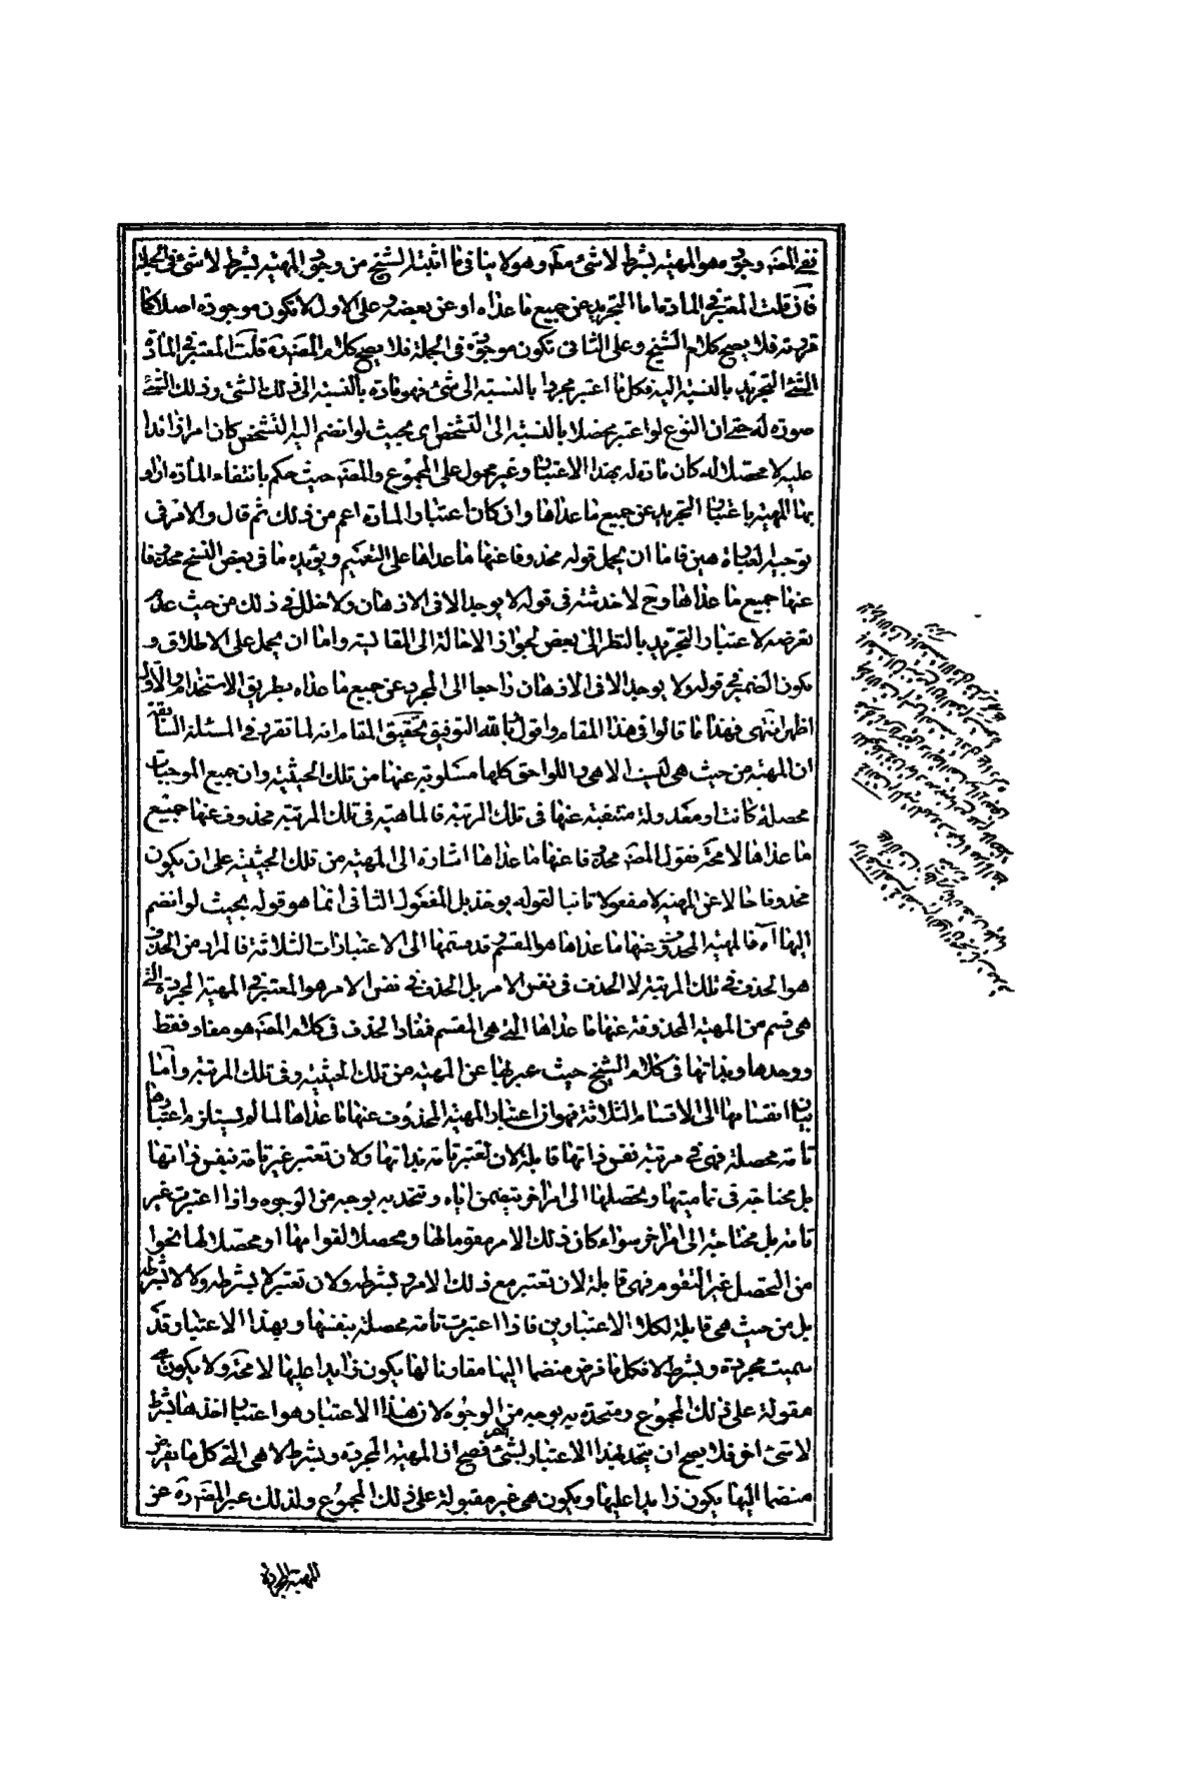 نفى المصنف وجوده هو المهية بشرط لا شئ مط وهو لا ينافى ما اثبته الشيخ من وجود المهية بشرط لا شئ فى الجملة
فان قلت المعتبر فى المادة اما التجريد عن جميع ما عداه او عن بعضه وعلى الاول لا تكون موجودة اصلا كما
قررته فلا يصح كلام الشيخ وعلى الثانى تكون موجودة فى الجملة فلا يصح كلام المصنف ره قلت المعتبر فى المادة
الشئ التجريد بالنسبة اليه فكل ما اعتبر مجردا بالنسبة الى شئ فهو مادة بالنسبة الى ذلك الشئ وذلك الشئ
صورة له حتى ان النوع لو اعتبر محصلا بالنسبة الى التشخص اى بحيث لو انضم اليه التشخص كان امرا زائدا
عليه لا محصلا له كان مادة له بهذا الاعتبار وغير محمول على المجموع والمصنف حيث حكم بانتفاء المادة اراد
بها المهية باعتبار التجريد عن جميع ما عداها وان كان اعتبار المادة اعم من ذلك ثم قال والامر فى
توجيه العبارة هين فاما ان يحمل قوله محذوفا عنها ما عداها على التعميم ويؤيده ما فى بعض النسخ محذوفا
عنها جميع ما عداها وح لا خدشة فى قوله لا يوجد الا فى الاذهان ولا خلل فى ذلك من حيث عدم
تعرضه لاعتبار التجريد بالنظر الى بعض لجواز الاحالة الى المقايسة واما ان يحمل على الاطلاق و
يكون الضمير فى قوله ولا يوجد الا فى الاذهان راجعا الى المجرد عن جميع ما عداه بطريق الاستخدام والاول
اظهر انتهى فهذا ما قالوا فى هذا المقام واقول بالله التوفيق تحقيق المقام انه لما تقرر فى المسئلة السابقة
ان المهية من حيث هى ليست الا هى واللواحق كلها مسلوبة عنها من تلك الحيثية وان جميع الموجبات
محصلة كانت او معدولة منتفية عنها فى تلك المرتبة فالماهية فى تلك المرتبة محذوف عنها جميع
ما عداها لا محة فقول المصنف محذوفا عنها ما عداها اشارة الى المهية من تلك الحيثية على ان يكون
محذوفا حالا عن المهية لا مفعولا ثانيا لقوله يوخذ بل المفعول الثانى انما هو قوله بحيث لو انضم
اليها آه فالمهية المحذوف عنها ما عداها هو المقسم قد قسمها الى الاعتبارات الثلاثة فالمراد من الحذف
هو الحذف فى تلك المرتبة لا الحذف فى نفس الامر بل الحذف فى نفس الامر هو المعتبر فى المهية المجردة التى
هى قسم من المهية المحذوفة عنها ما عداها التى هى المقسم فمفاد الحذف فى كلام المصنف هو مفاد فقط
ووحدها وبذاتها فى كلام الشيخ حيث عبر بها عن المهية من تلك الحيثية وفى تلك المرتبة واما
بيان انقسامها الى الاقسام الثلاثة فهو ان اعتبار المهية المحذوف عنها ما عداها لما لم يستلزم اعتبارها
تامة محصلة فهى فى مرتبة نفس ذاتها قابلة لان تعتبر تامة بذاتها ولان تعتبر غير تامة بنفس ذاتها
بل محتاجة فى تماميتها وتحصلها الى امر اخر يتضمن اياه وتتحد به بوجه من الوجوه واذا اعتبرت غير
تامة بل محتاجة الى امر اخر سواء كان ذلك الامر مقوما لها ومحصلا لقوامها او محصلا لها نحوا
من التحصل غير التقوم فهى قابلة لان تعتبر مع ذلك الامر وبشرطه ولان تعتبر لا بشرطه ولا لا بشرطه
بل من حيث هى قابلة لكلا الاعتبارين فاذا اعتبرت تامة محصلة بنفسها وبهذا الاعتبار قد
سميت مجردة وبشرط لا فكل ما فرض منضما اليها مقارنا لها يكون زايدا عليها لا محة ولا يكون هى
مقولة على ذلك المجموع ومتحدة به بوجه من الوجوه لان هذا الاعتبار هو اعتبار اخذها بشرط
لا شئ اخر فلا يصح ان يتحد بهذا الاعتبار بشئ اخر فصح ان المهية المجردة وبشرط لا هى التى كل ما يفرض
منضما اليها يكون زايدا عليها ويكون هى غير مقولة على ذلك المجموع ولذلك عبر المصنف ره عن
المهية المجردة